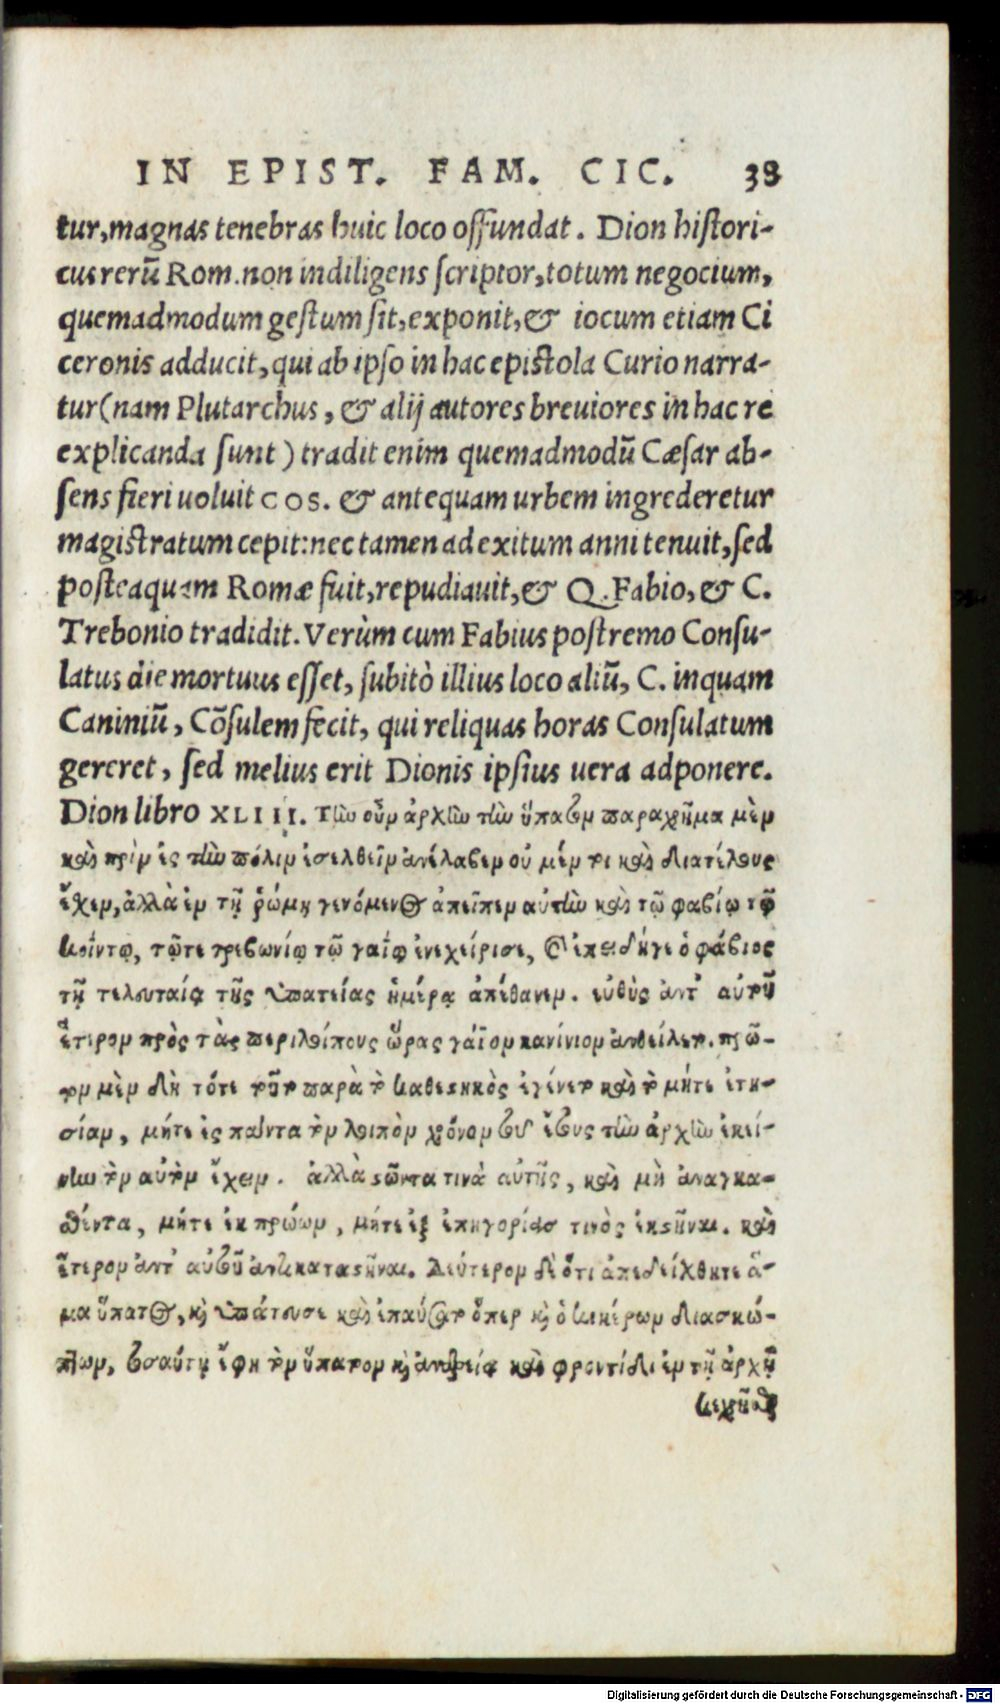 IN EPIST. FAM. CIC. 38
tur, magnas tenebras huic loco offundat. Dion histori-
cus rerũ Rom. non indiligens scriptor, totum negocium,
quemadmodum gestum sit, exponit, & iocum etiam Ci
ceronis adducit, qui ab ipso in hac epistola Curio narra-
tur (nam Plutarchus, & alij autores breuiores in hac re
explicanda sunt) tradit enim quemadmodũ Cæsar ab-
sens fieri uoluit COS. & antequam urbem ingrederetur
magistratum cepit: nec tamen ad exitum anni tenuit, sed
posteaquam Romæ fuit, repudiauit, & Q. Fabio, & C.
Trebonio tradidit. Verùm cum Fabius postremo Consu-
latus die mortuus esset, subitò illius loco aliũ, C. inquam
Caniniũ, Cõsulem fecit, qui reliquas horas Consulatum
gereret, sed melius erit Dionis ipsius uera adponere.
Dion libro XLIII. Τὴν οὖν ἀρχὴν τὴν ὕπατον παραχρῆμα μὲν
καὶ πρὶν ἐς τὴν πόλιν ἐσελθεῖν ἀνέλαβεν οὐ μέν τι καὶ διατέλους
ἔχεν, ἀλλὰ ἐν τῇ ῥώμῃ γενόμενος ἀπεῖπεν αὐτὴν καὶ τῷ φαβίῳ τῷ
κοΐντῳ, τῷτε τρεβωνίῳ τῷ γαΐῳ ἐνεχείρισε, ἐπειδήγε ὁ φάβιος
τῇ τελευταίᾳ τῆς ὑπατείας ἡμέρᾳ ἀπέθανεν. εὐθὺς ἀντ' αὐτοῦ
ἕτερον πρὸς τὰς περιλοίπους ὥρας γάϊον κανίνιον ἀνθείλετο. πρῶ-
τον μὲν δὴ τότε τοῦτο παρὰ τὸ καθεστηκὸς ἐγένετο καὶ τὸ μήτε ἐτη-
σίαν, μήτε ἐς πάντα τὸν λοιπὸν χρόνον τοῦ ἔτους τὴν ἀρχὴν ἐκεί-
νην τὸν αὐτὸν ἔχειν. ἀλλὰ ζῶντα τινὰ αὐτῆς, καὶ μὴ ἀναγκα-
θέντα, μήτε ἐκ πρώων, μήτε ἐξ ἐπηγορίας τινὸς ἐκστῆναι. καὶ
ἕτερον ἀντ' αὐτοῦ ἀντικαταστῆναι. Δεύτερον δὲ ὅτι ἀπεδείχθητε ἅ-
μα ὕπατος, καὶ ὑπάτευσε καὶ ἐπαύσατο ὅπερ καὶ ὁ κικέρων διασκώ-
πτων, τοσαύτῃ ἔφη τὸν ὕπατον καὶ ἀνδρείᾳ καὶ φροντίδι ἐν τῇ ἀρχῇ
κεχρῆσθ